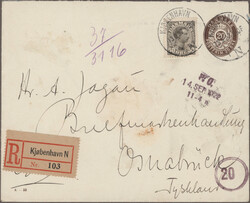 KJØBENHAVN
20
37
3116
Hr. A. Jagau
Briefmarkenhandlung
Osnabrück
Tyskland
R
Kjøbenhavn N
Nr. 103
14 SEP
20